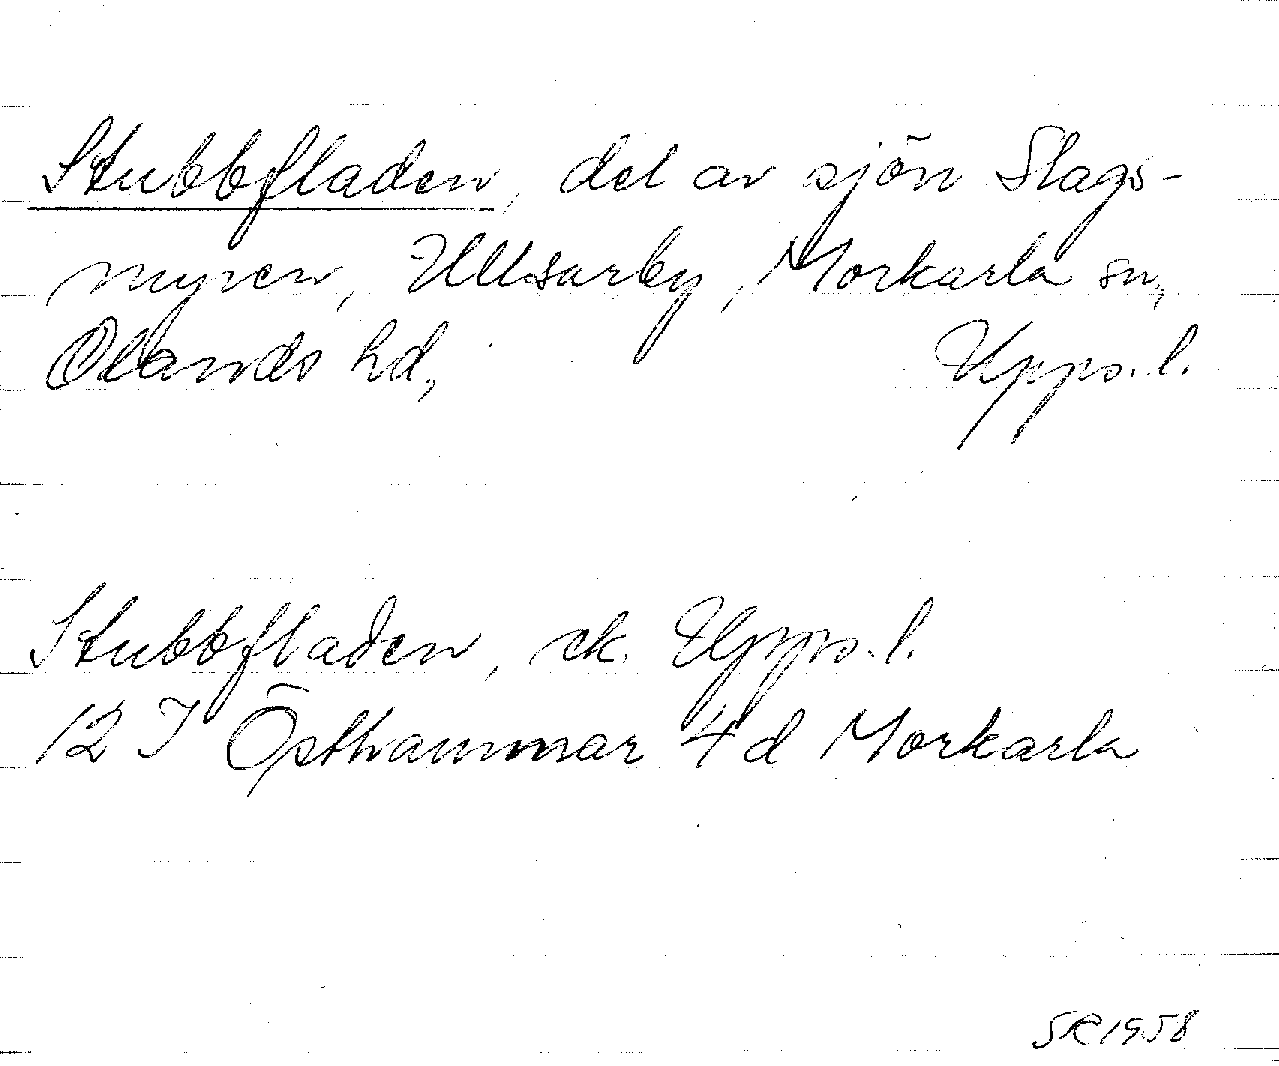 Stubbfladen, del av sjön Slags-
myren, Ullsarby, Morkarla sn,
Olands hd, Upps. l.
Stubbfladen, ek. Upps. l.
12 I Östhammar 4d Morkarla
SR 1958